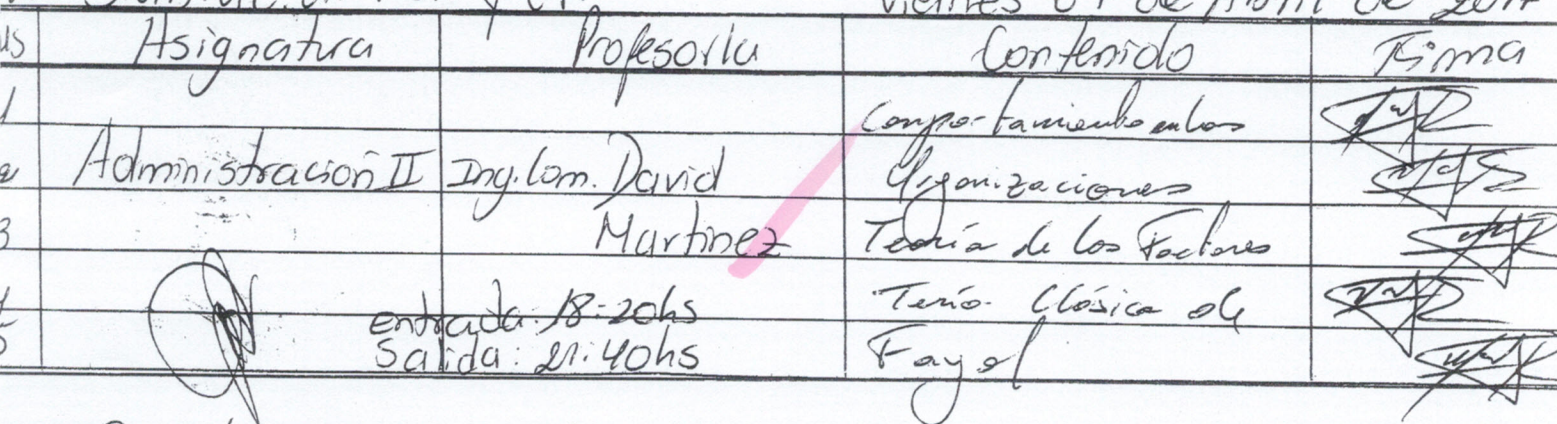 Viernes 07 de Abril de 2017
Asignatura Profesor/a Contenido Firma
Comportamiento en las
Administración II Ing. Com. David Organizaciones
3 Martinez Teoría de los Factores
Entrada: 18:20hs Teoría Clásica de
Salida: 21:40hs Fayol